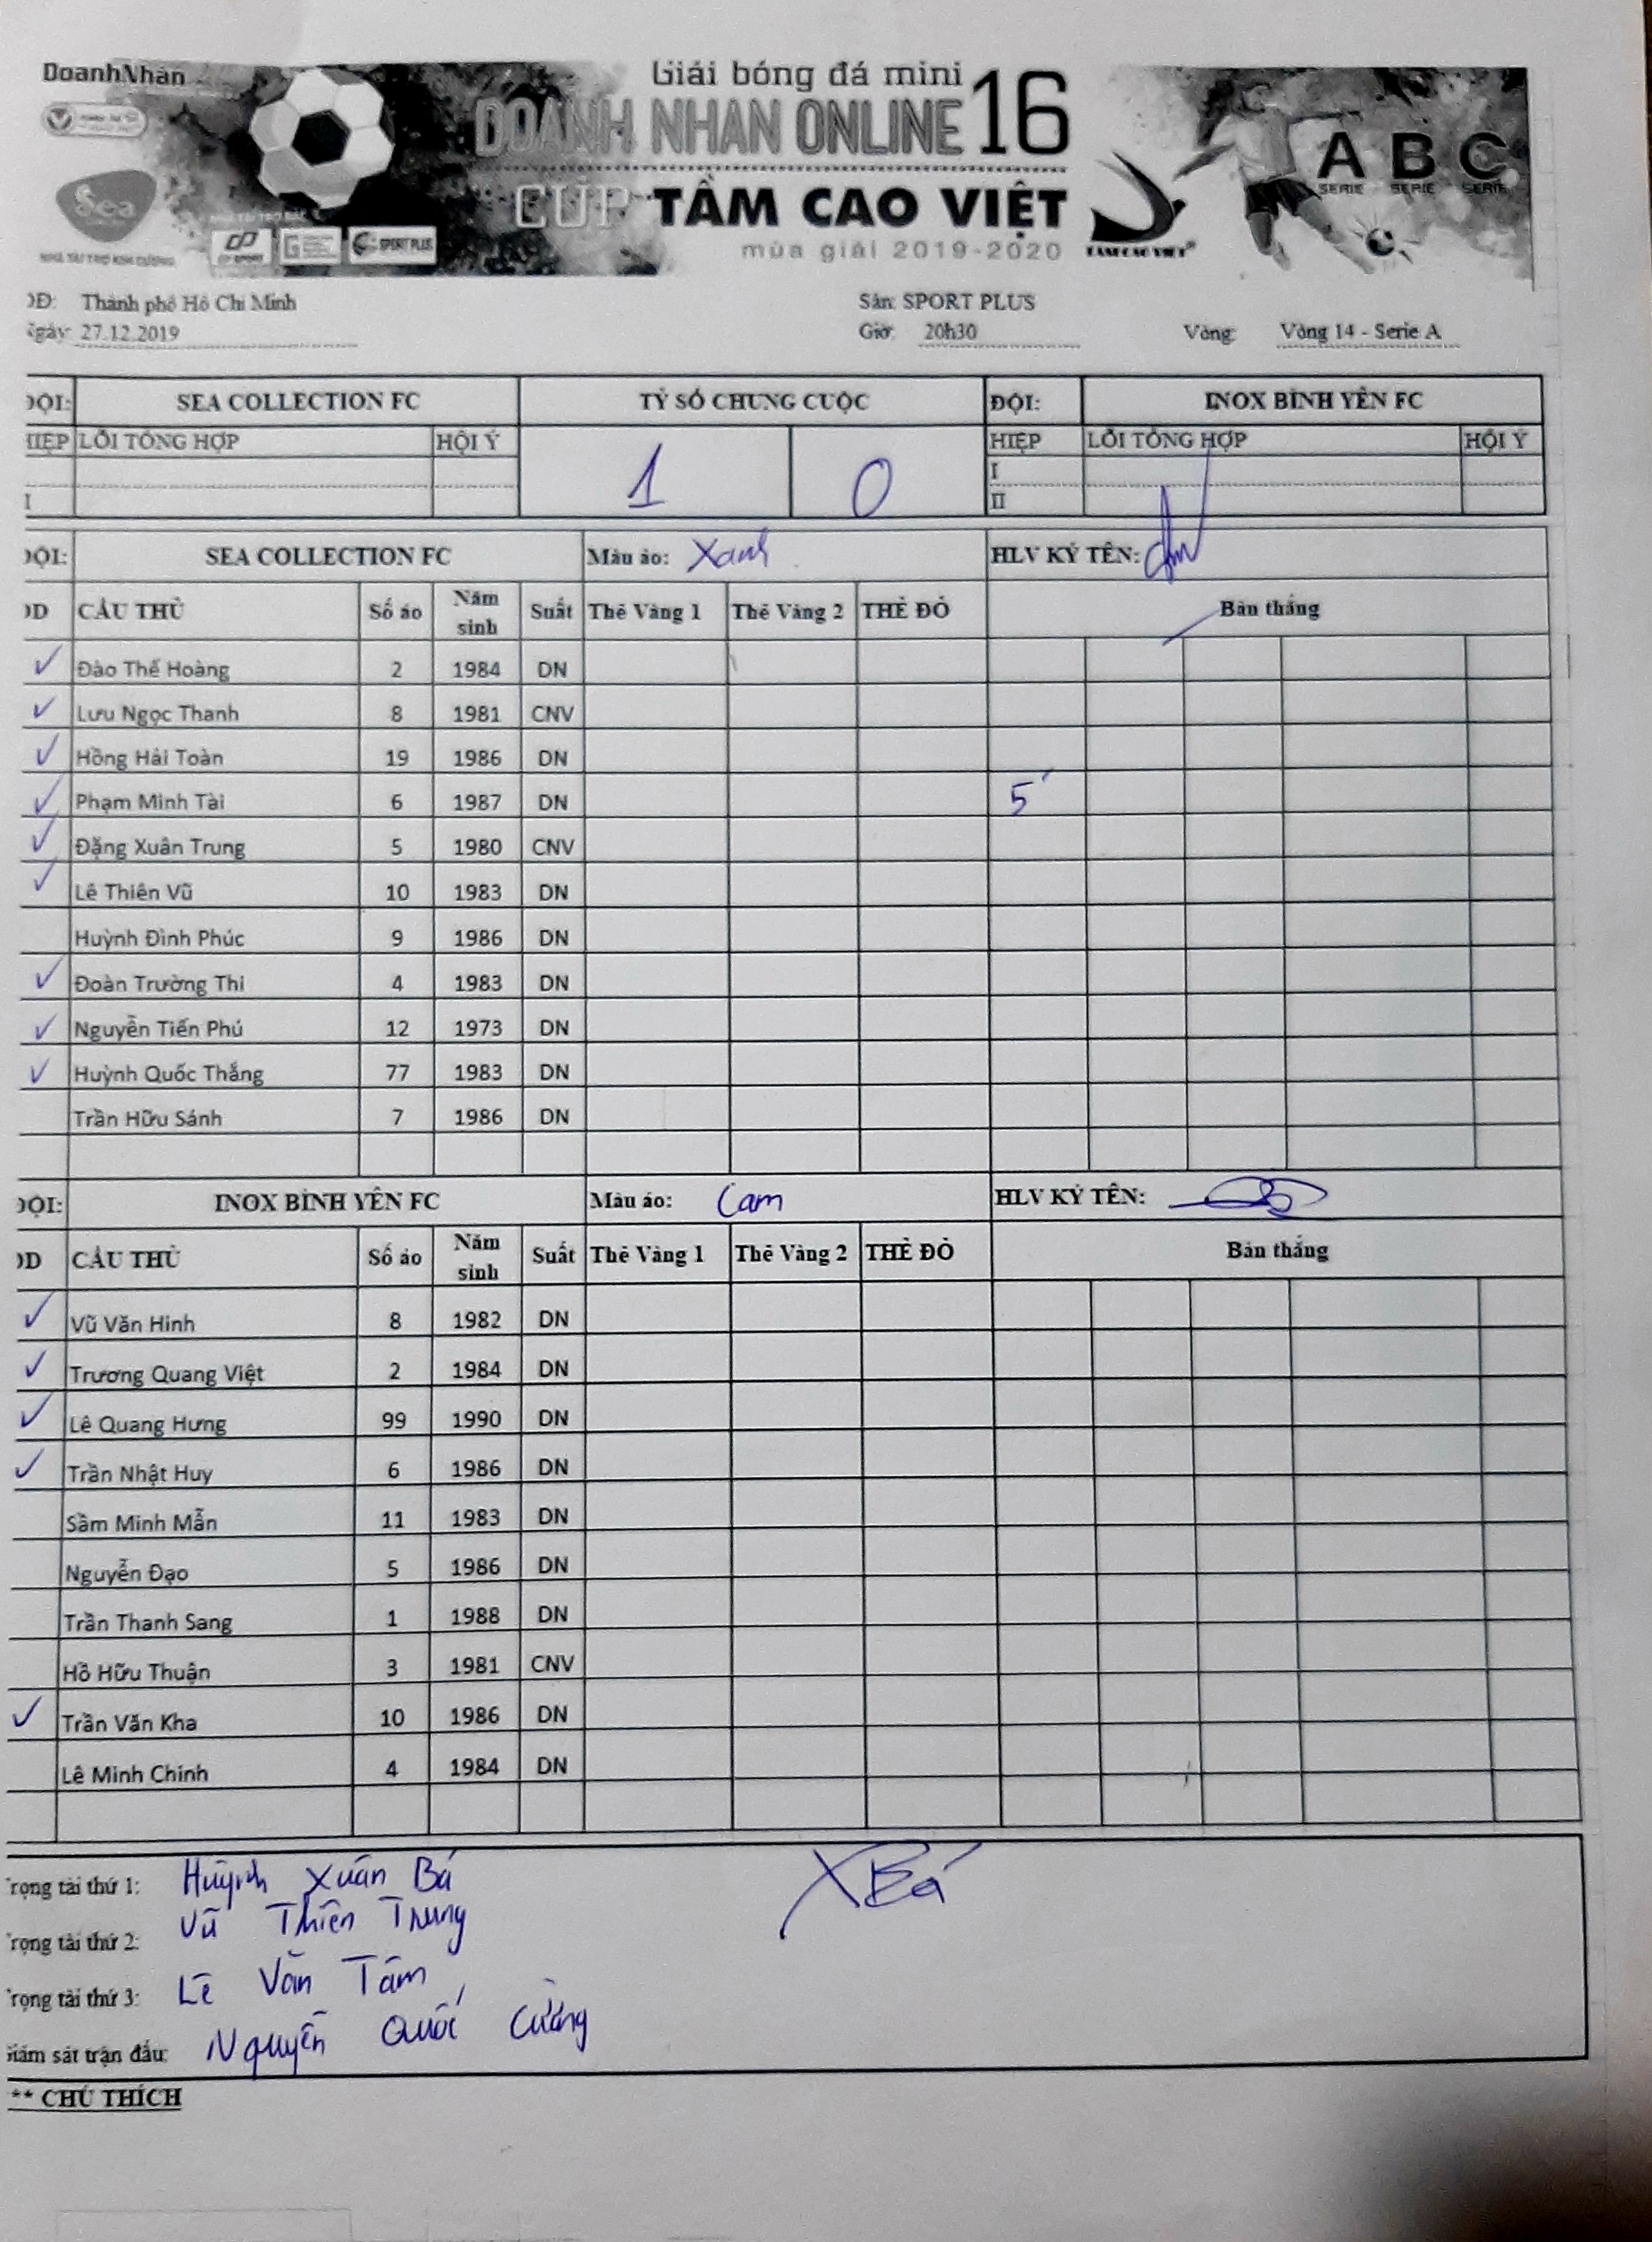 DoanhNhân
Giải bóng đá mini
DOANH NHÂN ONLINE 16
CÚP TẦM CAO VIỆT
mùa giải 2019-2020
Sea
NHÀ TÀI TRỢ KIM CƯƠNG
SPORT PLUS
TẦM CAO VIỆT
A B C
SERIE SERIE SERIE
ĐĐ: Thành phố Hồ Chí Minh Sân: SPORT PLUS
Ngày: 27.12.2019 Giờ: 20h30 Vòng: Vòng 14 - Serie A
ĐỘI: SEA COLLECTION FC TỶ SỐ CHUNG CUỘC ĐỘI: INOX BÌNH YÊN FC
HIỆP LỖI TỔNG HỢP HỘI Ý 1 0 HIỆP LỖI TỔNG HỢP HỘI Ý
I
I II
ĐỘI: SEA COLLECTION FC Màu áo: Xanh HLV KÝ TÊN:
DD CẦU THỦ Số áo Năm sinh Suất Thẻ Vàng 1 Thẻ Vàng 2 THẺ ĐỎ Bàn thắng
✓ Đào Thế Hoàng 2 1984 DN
✓ Lưu Ngọc Thanh 8 1981 CNV
✓ Hồng Hải Toàn 19 1986 DN
✓ Phạm Minh Tài 6 1987 DN 5'
✓ Đặng Xuân Trung 5 1980 CNV
✓ Lê Thiên Vũ 10 1983 DN
Huỳnh Đình Phúc 9 1986 DN
✓ Đoàn Trường Thi 4 1983 DN
✓ Nguyễn Tiến Phú 12 1973 DN
✓ Huỳnh Quốc Thắng 77 1983 DN
Trần Hữu Sánh 7 1986 DN
ĐỘI: INOX BÌNH YÊN FC Màu áo: Cam HLV KÝ TÊN:
DD CẦU THỦ Số áo Năm sinh Suất Thẻ Vàng 1 Thẻ Vàng 2 THẺ ĐỎ Bàn thắng
✓ Vũ Văn Hinh 8 1982 DN
✓ Trương Quang Việt 2 1984 DN
✓ Lê Quang Hưng 99 1990 DN
✓ Trần Nhật Huy 6 1986 DN
Sầm Minh Mẫn 11 1983 DN
Nguyễn Đạo 5 1986 DN
Trần Thanh Sang 1 1988 DN
Hồ Hữu Thuận 3 1981 CNV
✓ Trần Văn Kha 10 1986 DN
Lê Minh Chính 4 1984 DN
Trọng tài thứ 1: Huỳnh Xuân Bá XBá
Trọng tài thứ 2: Vũ Thiên Trung
Trọng tài thứ 3: Lê Văn Tám
Giám sát trận đấu: Nguyễn Quốc Cường
** CHÚ THÍCH